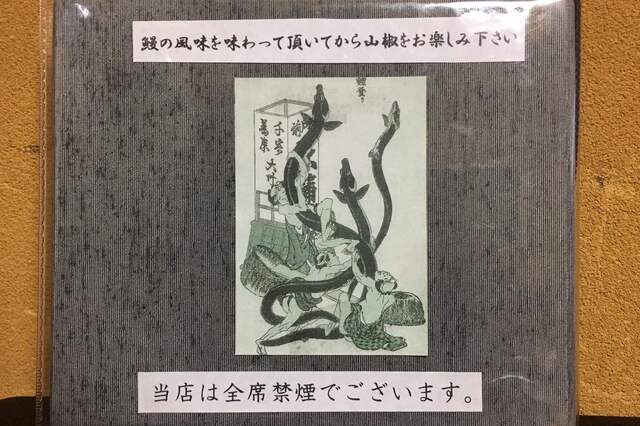 鰻の風味を味わって頂いてから山椒をお楽しみ下さい
千客
万来
大叶
当店は全席禁煙でございます。